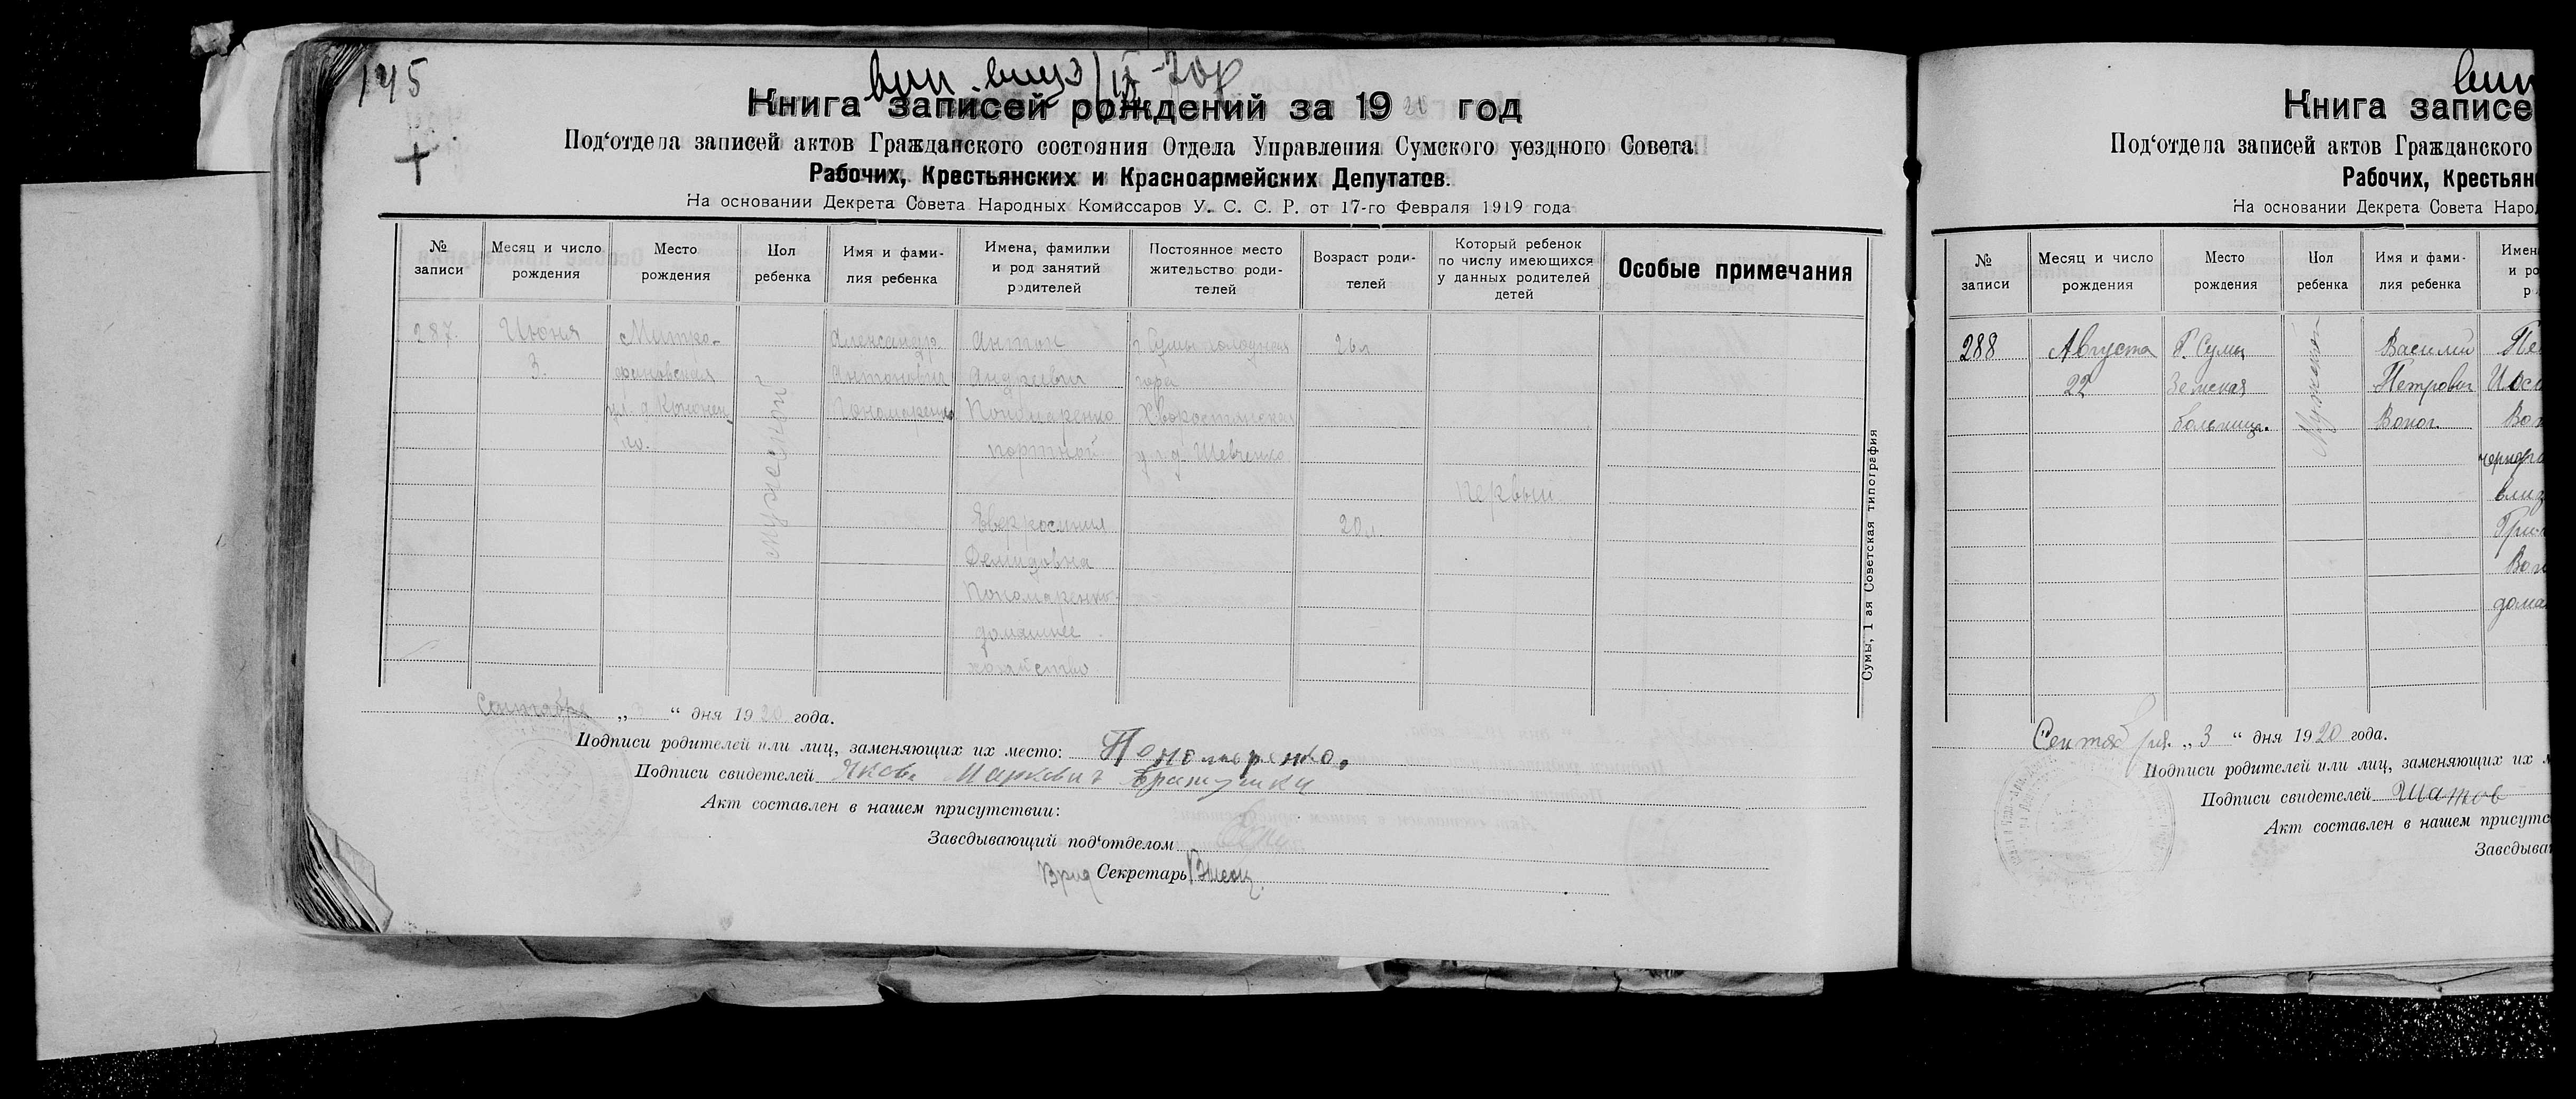 145
вип. вищэ/IX-70р
Книга записей рождений за 1920 год
Под‘отдела записей актов Гражданского состояния Отдела Управления Сумского уездного Совета
Рабочих, Крестьянских и Красноармейских Депутатов.
На основании Декрета Совета Народных Комиссаров У. С. С. Р. от 17-го Февраля 1919 года
№ записи
Месяц и число рождения
Место рождения
Пол ребенка
Имя и фамилия ребенка
Имена, фамилии и род занятий родителей
Постоянное место жительство родителей
Возраст родителей
Который ребенок по числу имеющихся у данных родителей детей
Особые примечания
287.
Июня
3.
Митро-
фановская
ул. д. Кононен
ко.
мужеской
Александр
Антонович
Пономаренко
Антон
Андреевич
Пономаренко
портной
Евфросиния
Демидовна
Пономаренко
домашнее
хозяйство
г. Сумы холодная
гора
Хворостянская
ул. д. Шевченко
26 л.
20 л.
первый
Сумы, 1 ая Советская типография
Сентября „ 3 “ дня 1920 года.
Подписи родителей или лиц, заменяющих их место: Пономаренко.
Подписи свидетелей Яков Маркович
Акт составлен в нашем присутствии:
Заведывающий под‘отделом
Врид Секретарь
вип
Книга записе
Под‘отдела записей актов Гражданского
Рабочих, Крестьян
На основании Декрета Совета Народ
№ записи
Месяц и число рождения
Место рождения
Пол ребенка
Имя и фамилия ребенка
Имен
и ро
р
288
Августа
22
Г. Сумы
Земская
больница.
Мужеской
Василий
Петрович
Вопог
Пе
Сентября „ 3 “ дня 1920 года.
Подписи родителей или лиц, заменяющих их м
Подписи свидетелей Шатов
Акт составлен в нашем присутс
Заведыва